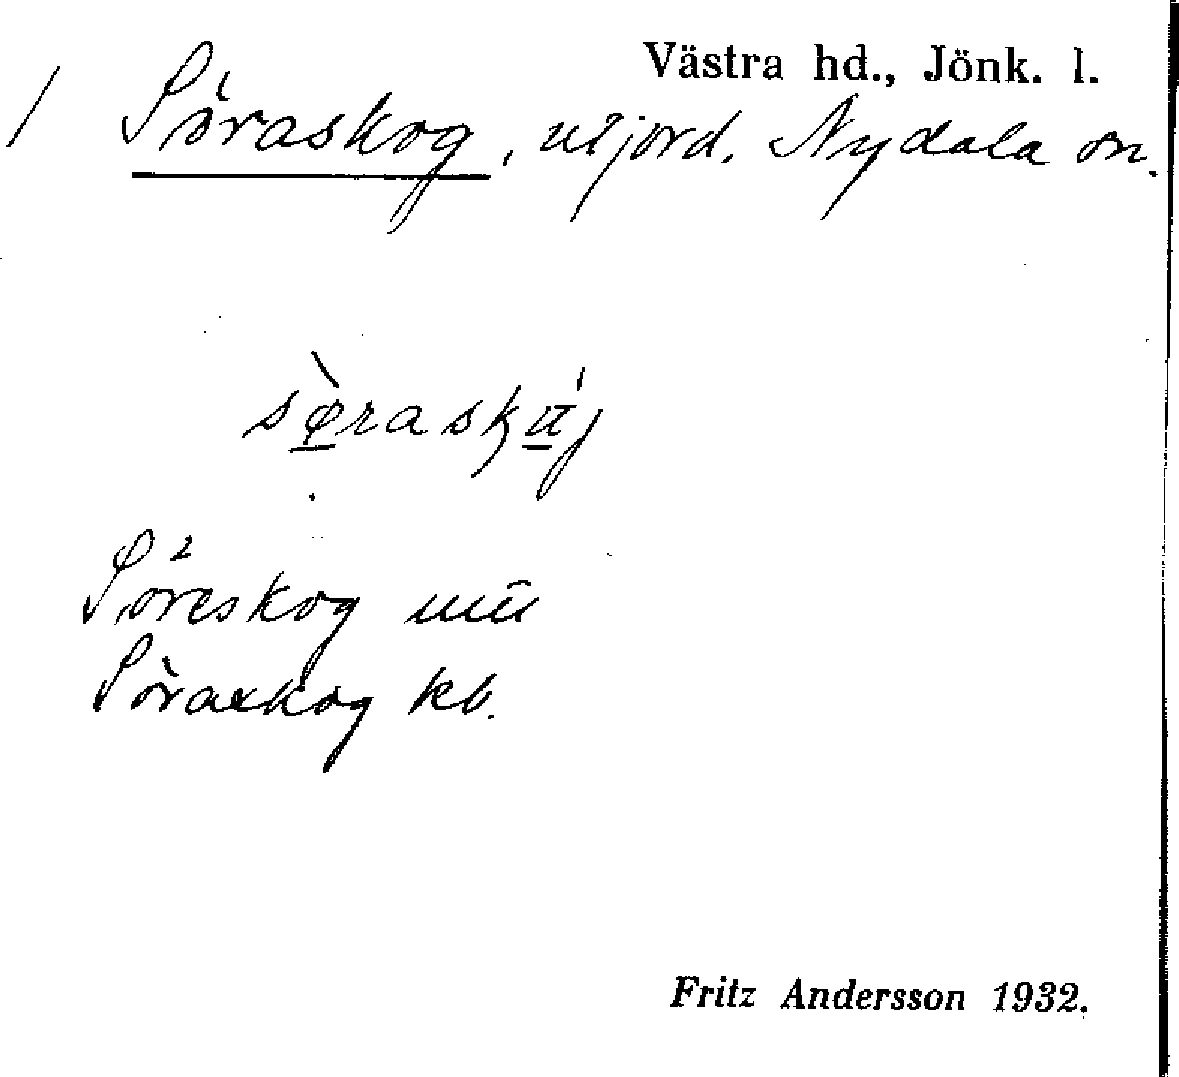 Västra hd., Jönk. l.
1 Söraskog, utjord. Nydala sn.
Söreskog
Söraskog kb.
Fritz Andersson 1932.